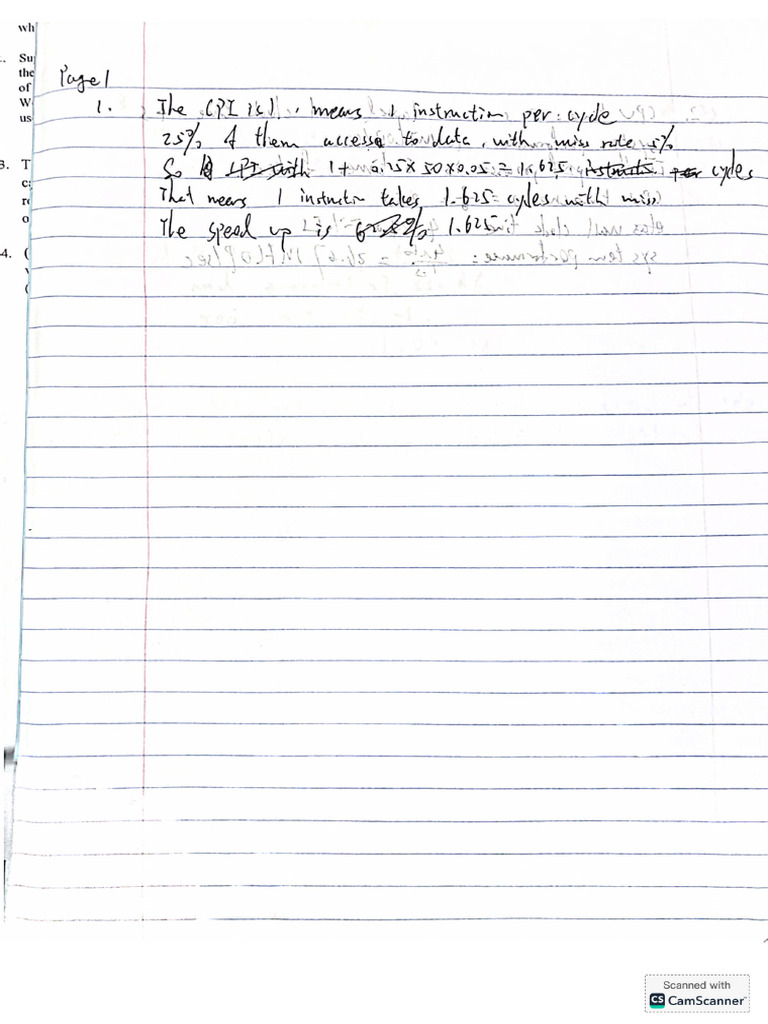 wh
Su
the
of
W
us
Page 1
1. The CPI is 1, means 1 instruction per cycle
25% of them access to data, with miss rate 5%
3. T
So CPI with 1 + 0.25 × 50 × 0.05 = 1.625 instructis per cycles
That means 1 instruction takes 1.625 cycles with miss
The speed up is 1.625
4. (
Scanned with
CS CamScanner